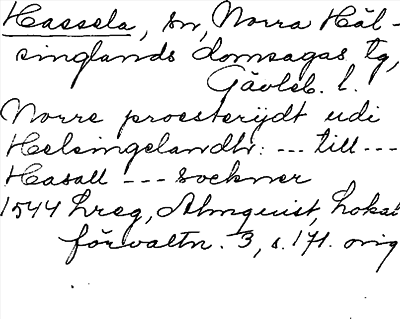 Hassela, sn, Norra Häl-
singlands domsagas tg,
Gävleb. l.
Norre proesterijdt udi
Helsingelandtr: --- till ---
Hasall --- sockner
1544 hreg, Almquist, Lokal
förvaltn. 3, s. 171. orig